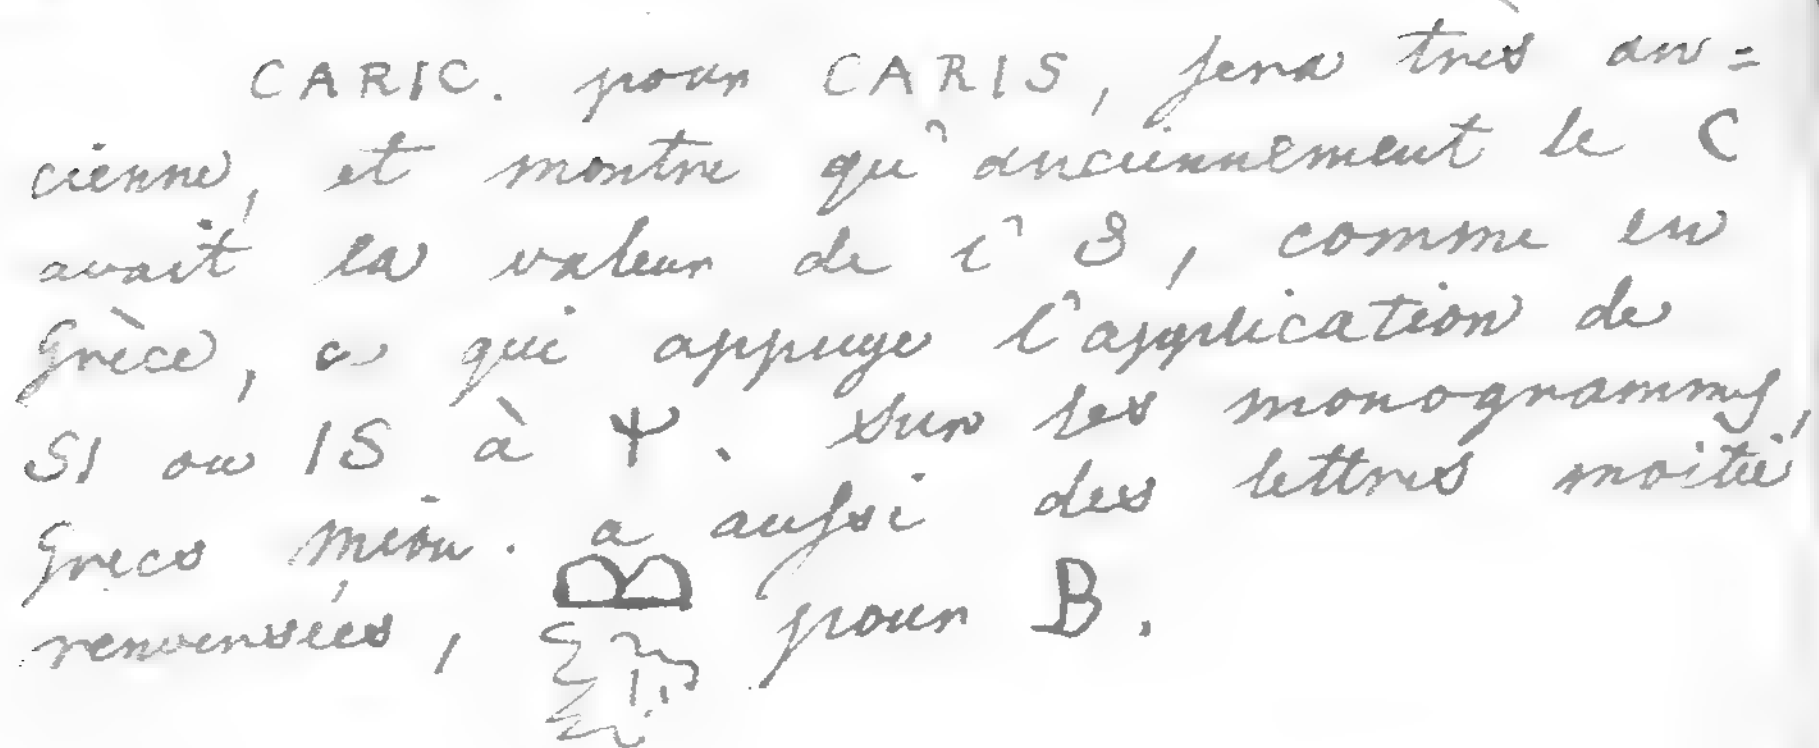 CARIC. pour CARIS, sera très an=
cienne, et montre qu'anciennement le C
avait la valeur de l'S, comme en
Grèce, ce qui appuye l'application de
SI ou IS à Ψ. Sur les monogrammes,
Grecs Mion. a aussi des lettres moitié
renversées, pour B.